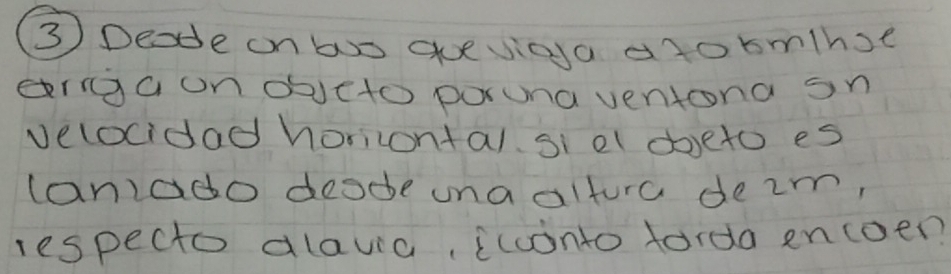 ③ Desde un bus que viaja a 70 km/h se
arroja un objeto por una ventana sn
velocidad horizontal. si el objeto es
lanzado desde una altura de 2m,
respecto a la via, ¿cuánto tarda en caer